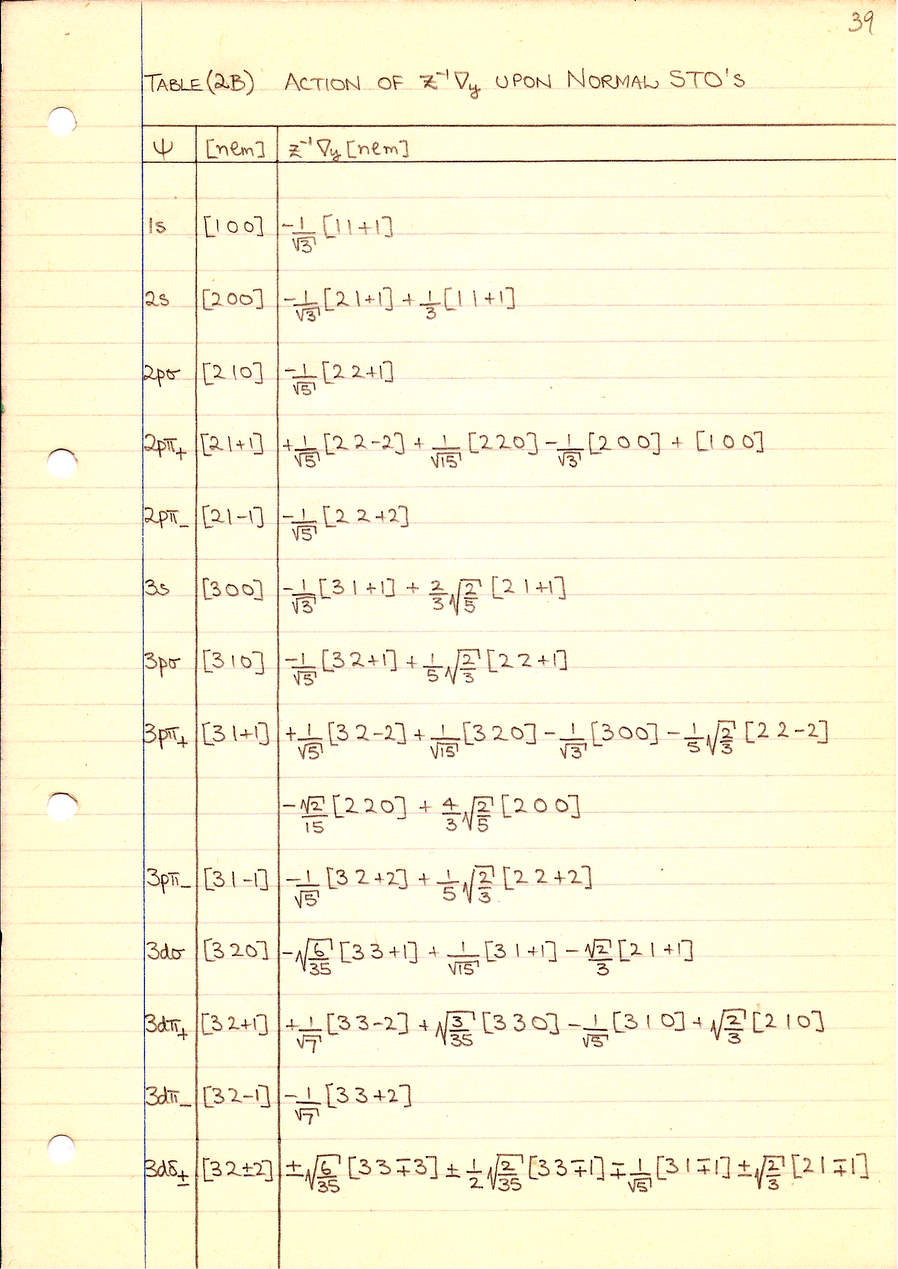 39
TABLE (2B) ACTION OF Z⁻¹∇y UPON NORMAL STO'S
ψ [nlm] Z⁻¹∇y [nlm]
1s [100] -1/√3 [11+1]
2s [200] -1/√3 [21+1] + 1/3 [11+1]
2pσ [210] -1/√5 [22+1]
2pπ₊ [21+1] +1/√5 [22-2] + 1/√15 [220] - 1/√3 [200] + [100]
2pπ₋ [21-1] -1/√5 [22+2]
3s [300] -1/√3 [31+1] + 2/3 √(2/5) [21+1]
3pσ [310] -1/√5 [32+1] + 1/5 √(2/3) [22+1]
3pπ₊ [31+1] +1/√5 [32-2] + 1/√15 [320] - 1/√3 [300] - 1/5 √(2/3) [22-2]
-√2/15 [220] + 4/3 √(2/5) [200]
3pπ₋ [31-1] -1/√5 [32+2] + 1/5 √(2/3) [22+2]
3dσ [320] -√(6/35) [33+1] + 1/√15 [31+1] - √2/3 [21+1]
3dπ₊ [32+1] +1/√7 [33-2] + √(3/35) [330] - 1/√5 [310] + √(2/3) [210]
3dπ₋ [32-1] -1/√7 [33+2]
3dδ± [32±2] ±√(6/35) [33∓3] ± 1/2 √(2/35) [33∓1] ∓ 1/√5 [31∓1] ± √(2/3) [21∓1]